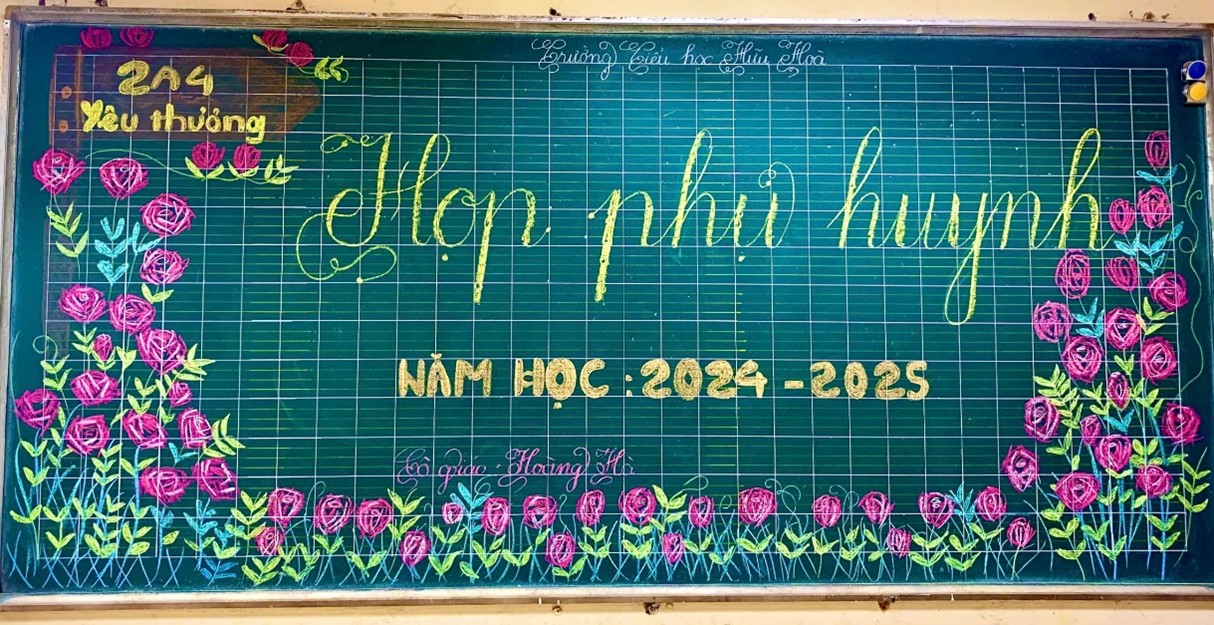 Trường Tiểu học Hữu Hoà
2A4
Yêu thương
Họp phụ huynh
NĂM HỌC : 2024 - 2025
Cô giáo : Hoàng Hà